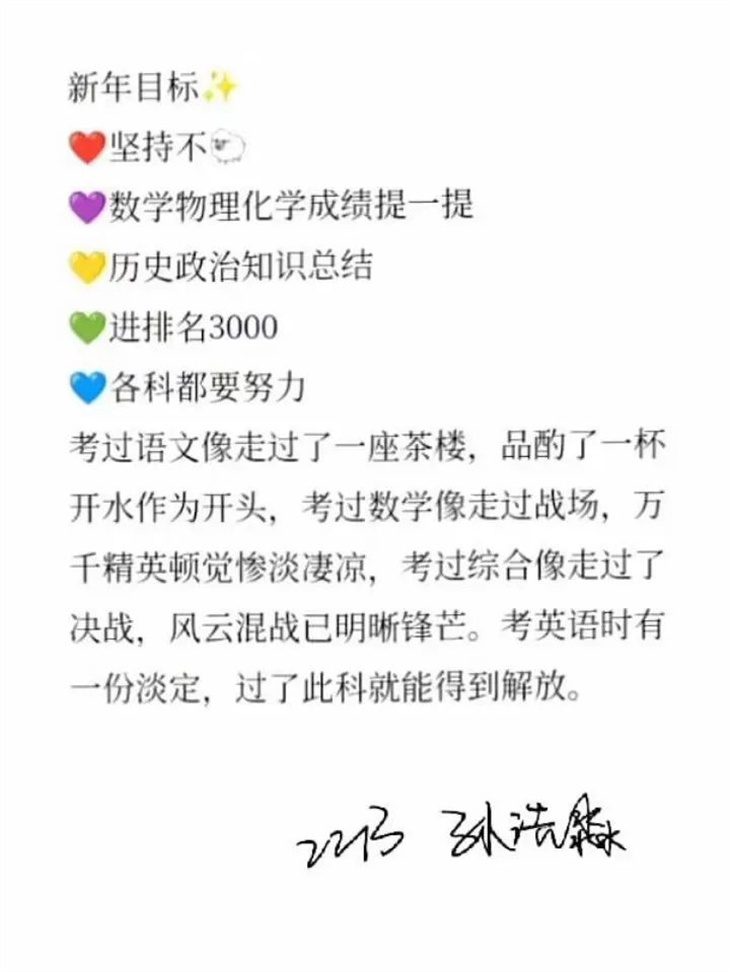 新年目标✨
❤️坚持不🐑
💜数学物理化学成绩提一提
💛历史政治知识总结
💚进排名3000
💙各科都要努力
考过语文像走过了一座茶楼，品酌了一杯
开水作为开头，考过数学像走过战场，万
千精英顿觉惨淡凄凉，考过综合像走过了
决战，风云混战已明晰锋芒。考英语时有
一份淡定，过了此科就能得到解放。
孙浩